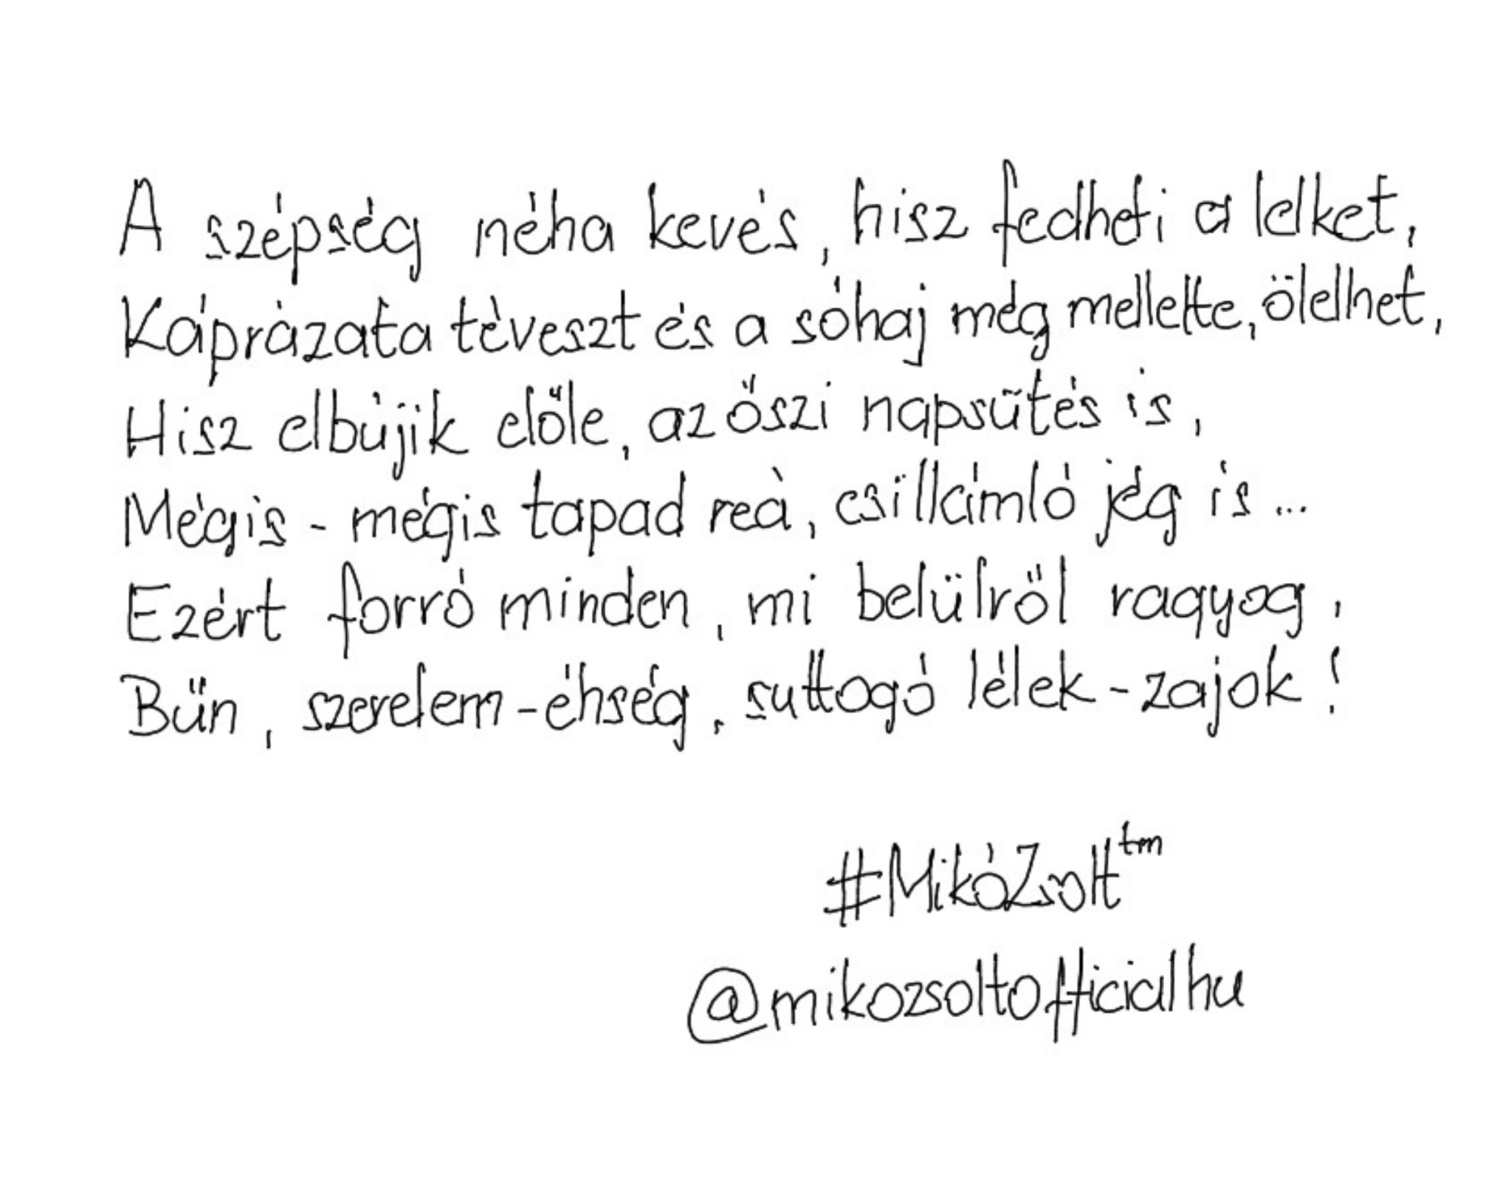 A szépség néha kevés, hisz fedheti a lelket,
Káprázata téveszt és a sóhaj még mellette, ölelhet,
Hisz elbújik előle, az őszi napsütés is,
Mégis - mégis tapad reá, csillámló jég is...
Ezért forró minden, mi belülről ragyog,
Bűn, szerelem-éhség, suttogó lélek-zajok!
#MikóZsolt™
@mikozsoltofficialhu